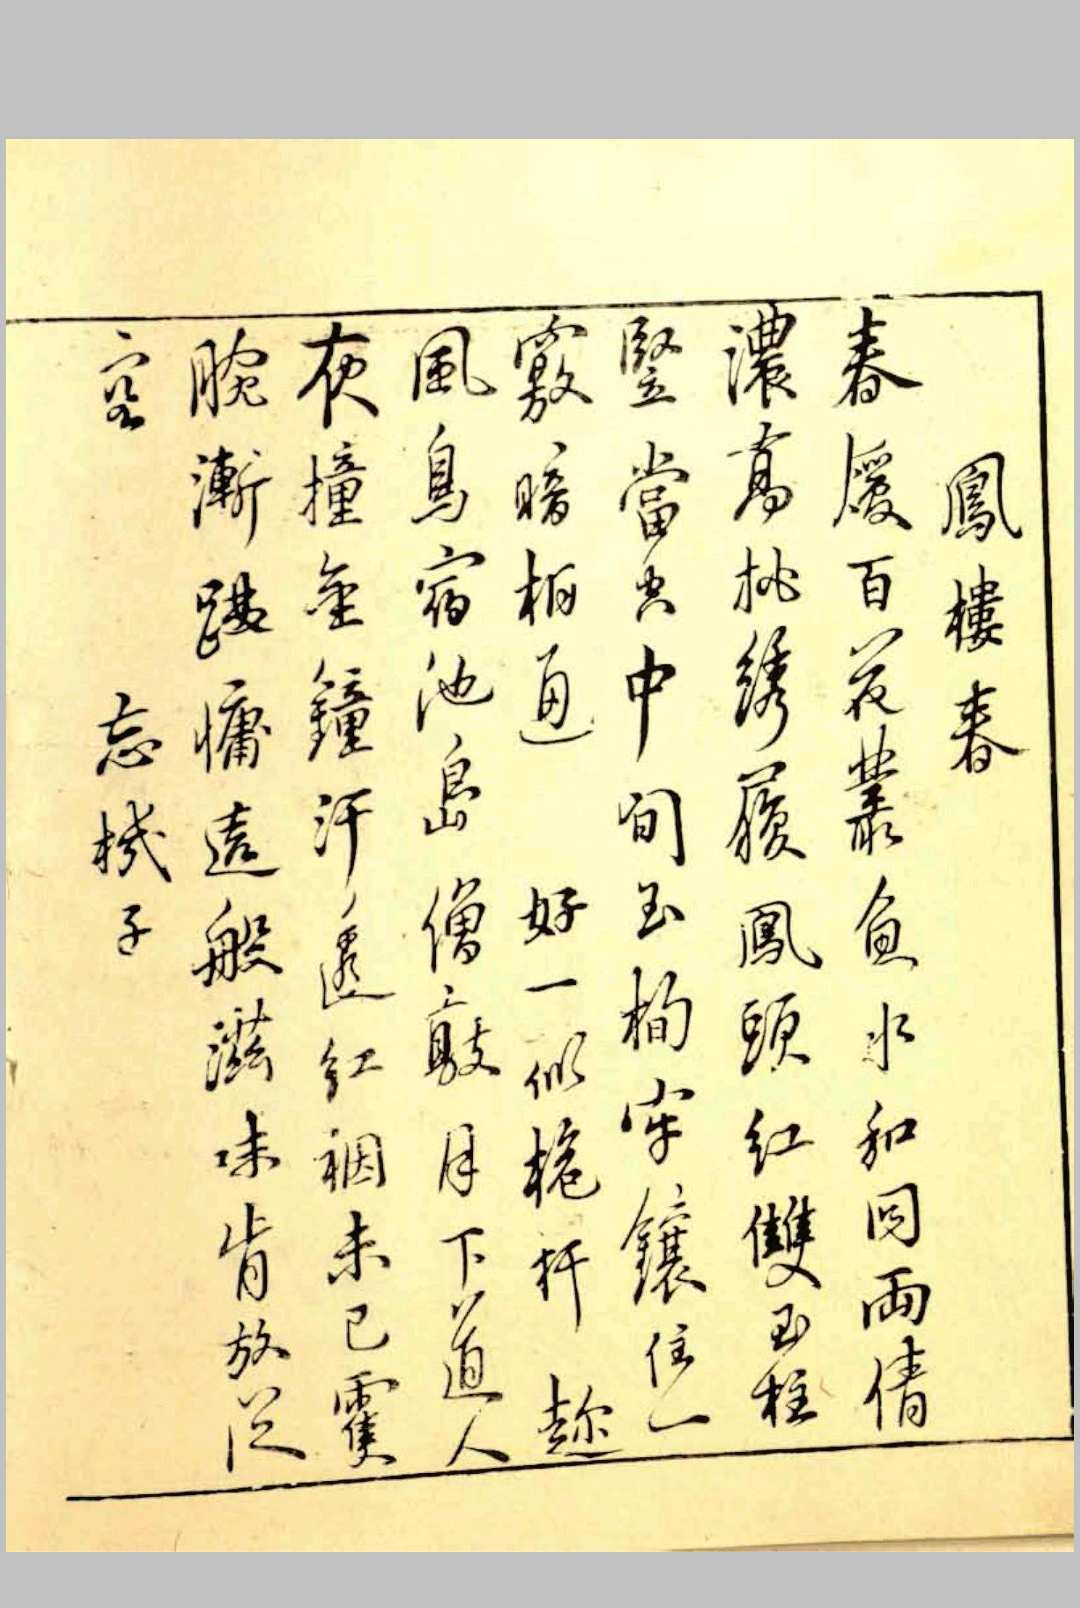 鳳樓春
春暖百花叢魚水和同兩情
濃高挑繡履鳳頭紅雙玉柱
豎當空中旬玉栒牢鑲住一
竅暗相通 好一似桅杆趂
風鳥宿池島僧敲月下道人
夜撞金鐘汗透紅裀未已霎
腕漸慵這般滋味肯放從
容 忘機子